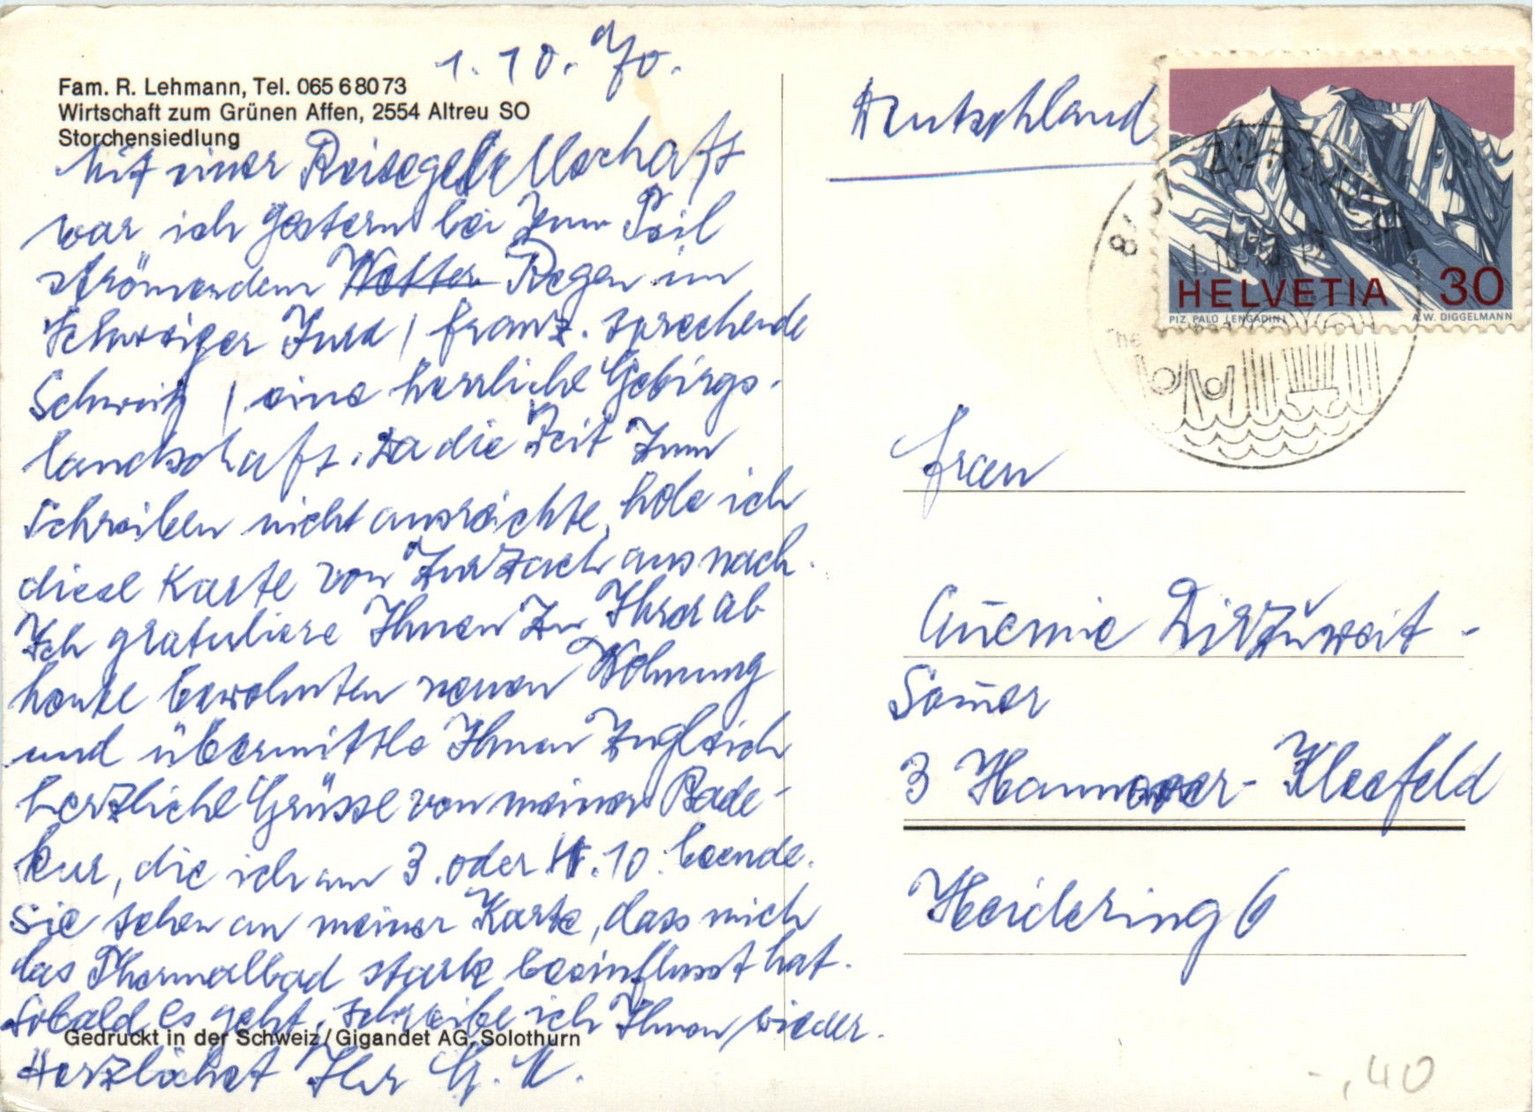 1. 10. 70.
Fam. R. Lehmann, Tel. 065 6 80 73
Wirtschaft zum Grünen Affen, 2554 Altreu SO
Storchensiedlung
Mit einer Reisegesellschaft
war ich gestern bei zum Teil
strömendem Wetter Regen im
Schweizer Jura / franz. sprechende
Schweiz / eine herrliche Gebirgs-
landschaft. Da die Zeit zum
Schreiben nicht ausreichte, hole ich
diese Karte von Zurzach aus nach.
Ich gratuliere Ihnen zu Ihrer ab
heute bewohnten neuen Wohnung
und übermittle Ihnen zugleich
herzliche Grüsse von meiner Bade-
kur, die ich am 3. oder 4. 10. beende.
Sie sehen an meiner Karte, dass mich
das Thermalbad stark beeinflusst hat.
Sobald es geht, schreibe ich Ihnen wieder.
Gedruckt in der Schweiz / Gigandet AG, Solothurn
Herzlichst Ihr
Deutschland
HELVETIA 30
PIZ PALÜ (ENGADIN) A.W. DIGGELMANN
Frau
3 Hannover-Kleefeld
Heidering 6
-,40